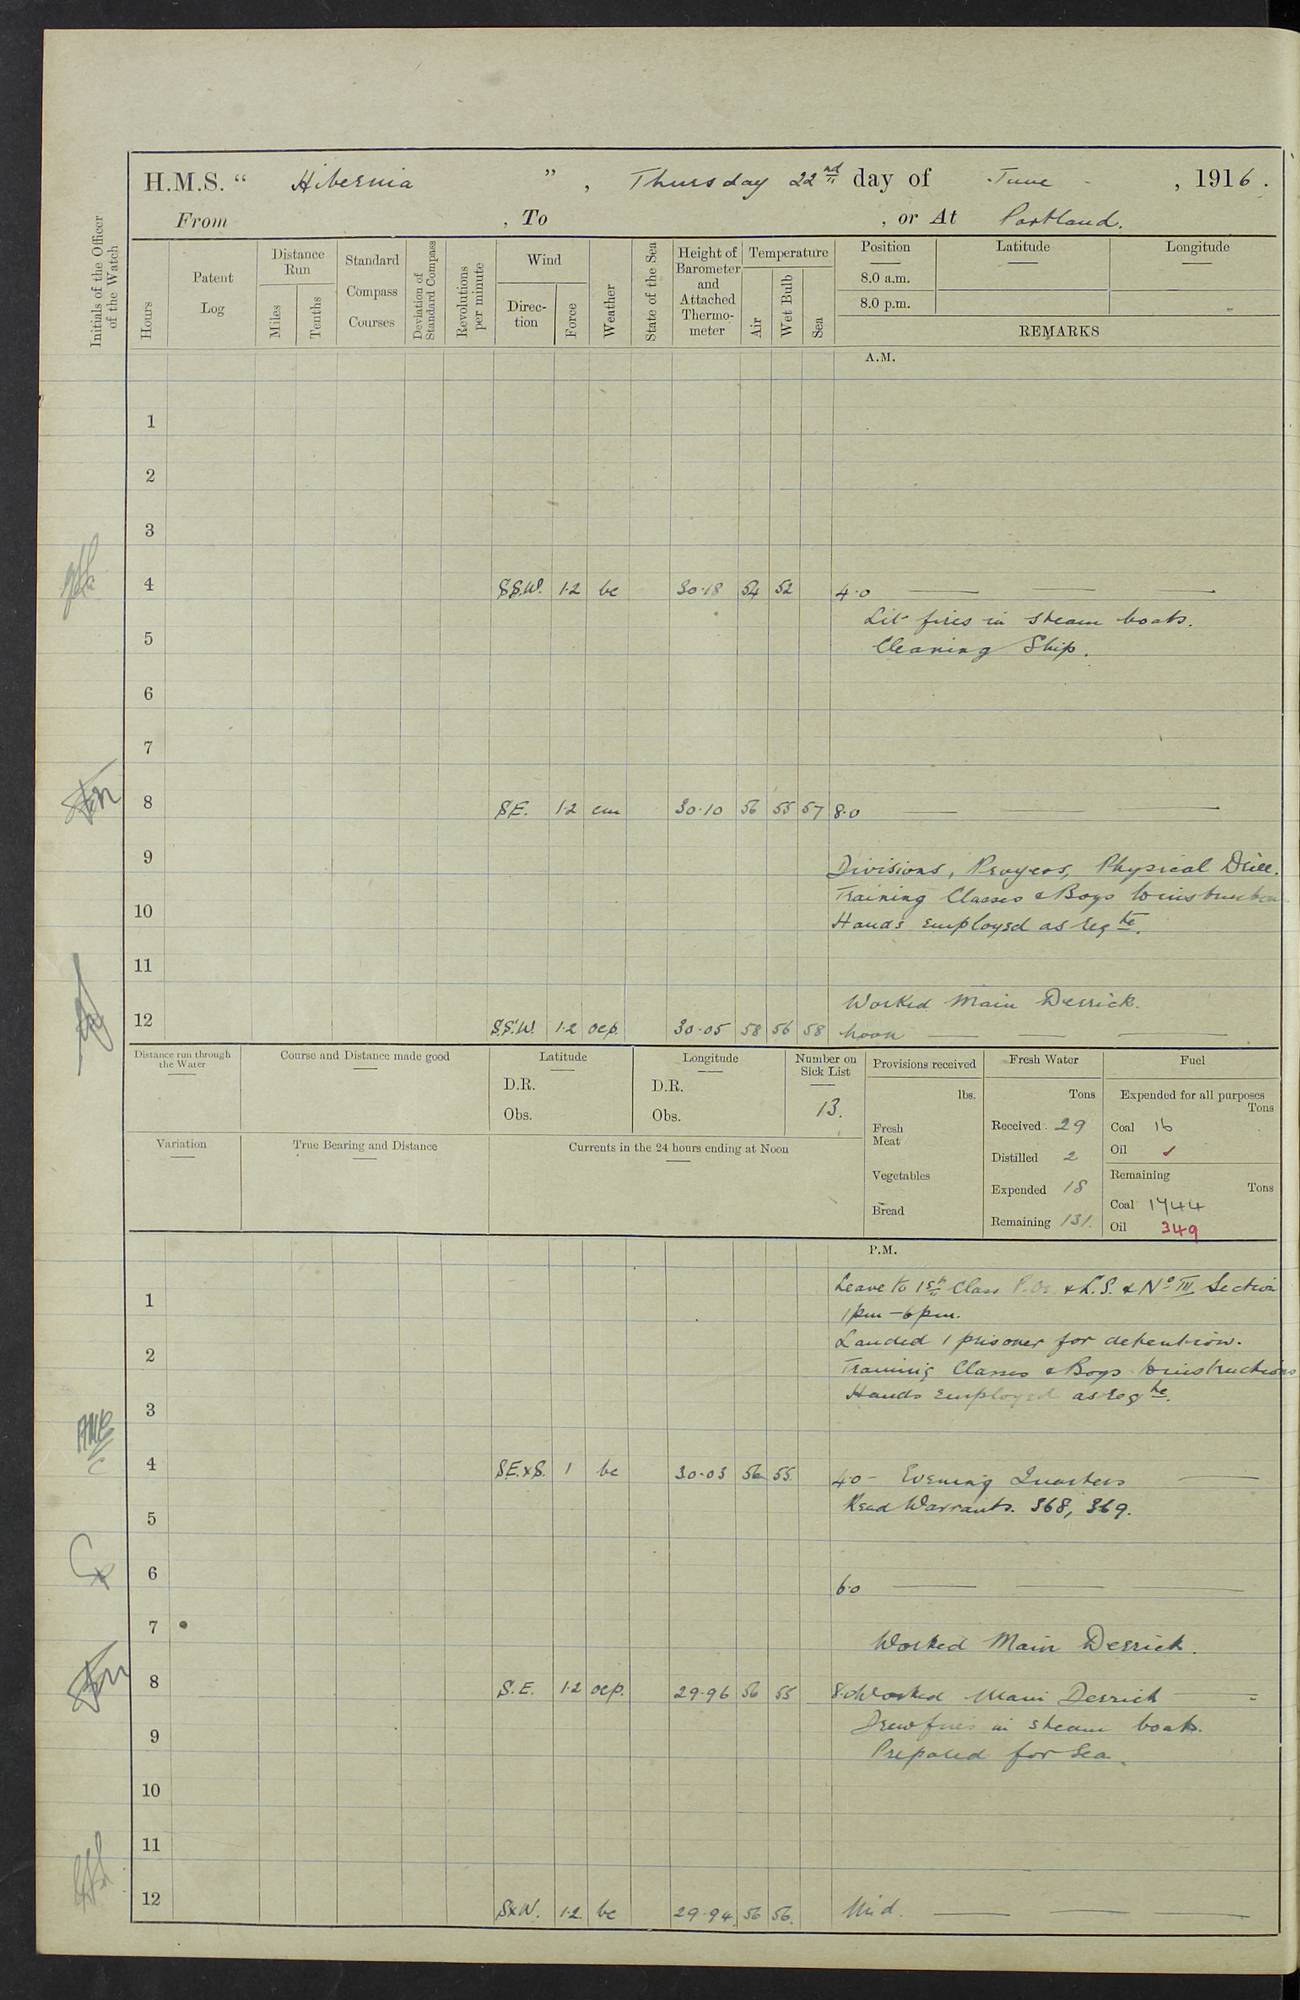 H.M.S. “ Hibernia ” , Thursday 22nd day of June , 1916.
From , To , or At Portland.
Initials of the Officer of the Watch
Hours
Patent Log
Distance Run
Miles
Tenths
Standard Compass Courses
Deviation of Standard Compass
Revolutions per minute
Wind
Direc-tion
Force
Weather
State of the Sea
Height of Barometer and Attached Thermo-meter
Temperature
Air
Wet Bulb
Sea
Position
8.0 a.m.
8.0 p.m.
Latitude
Longitude
REMARKS
A.M.
1
2
3
4 S.S.W. 1.2 bc 30.18 54 52 4.0
Lit fires in steam boats.
5 Cleaning Ship.
6
7
8 S.E. 1.2 cm 30.10 56 55 57 8.0
9 Divisions, Prayers, Physical Drill.
Training Classes & Boys to instruction
10 Hands employed as reqte.
11
Worked Main Derrick.
12 S.S.W. 1.2 ocp. 30.05 58 56 58 Noon
Distance run through the Water
Course and Distance made good
Latitude
D.R.
Obs.
Longitude
D.R.
Obs.
Number on Sick List
13.
Provisions received
lbs.
Fresh Meat
Vegetables
Bread
Fresh Water
Tons
Received 29
Distilled 2
Expended 18
Remaining 131.
Fuel
Expended for all purposes
Tons
Coal 16
Oil
Remaining
Tons
Coal 1744
Oil 349
Variation
True Bearing and Distance
Currents in the 24 hours ending at Noon
P.M.
Leave to 1st Class P.Os & L.S. & No III Section
1 1pm – 6pm.
Landed 1 prisoner for detention.
2 Training Classes & Boys to instructions
3 Hands employed as reqte.
4 S.E.xS. 1 bc 30.03 56 55. 4.0 – Evening Quarters
5 Read Warrants. 368, 369.
6 6.0
7 Worked Main Derrick.
8 S.E. 1.2 ocp. 29.96 56 55 8.0 Worked Main Derrick
9 Drew fires in steam boats.
Prepared for Sea.
10
11
12 SxW. 1.2 bc 29.94 56 56. Mid.